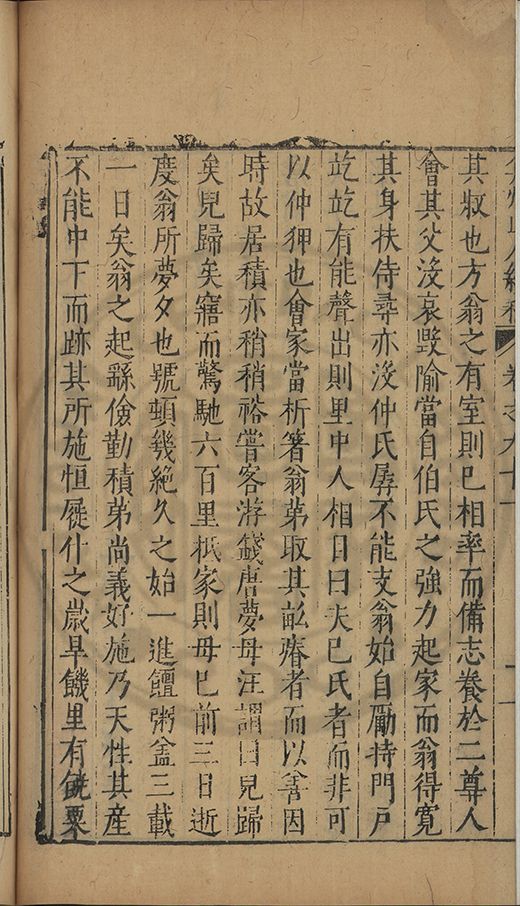 弇州山人續稿 卷之九十一 十一
其叔也方翁之有室則已相率而備志養於二尊人
會其父沒哀毀隃當自伯氏之強力起家而翁得寬
其身扶侍尋亦沒仲氏孱不能支翁始自勵持門戶
矻矻有能聲出則里中人相目曰夫已氏者而非可
以仲狎也會家當析箸翁弟取其畝瘠者而以善因
時故居積亦稍稍裕嘗客游籛唐夢母汪謂曰兒歸
矣兒歸矣寤而驚馳六百里抵家則母已前三日逝
度翁所夢夕也號頓幾絕久之始一進饘粥盆三載
一日矣翁之起繇儉勤積弟尚義好施乃天性其產
不能中下而跡其所施恒屣什之歲旱饑里有饒粟